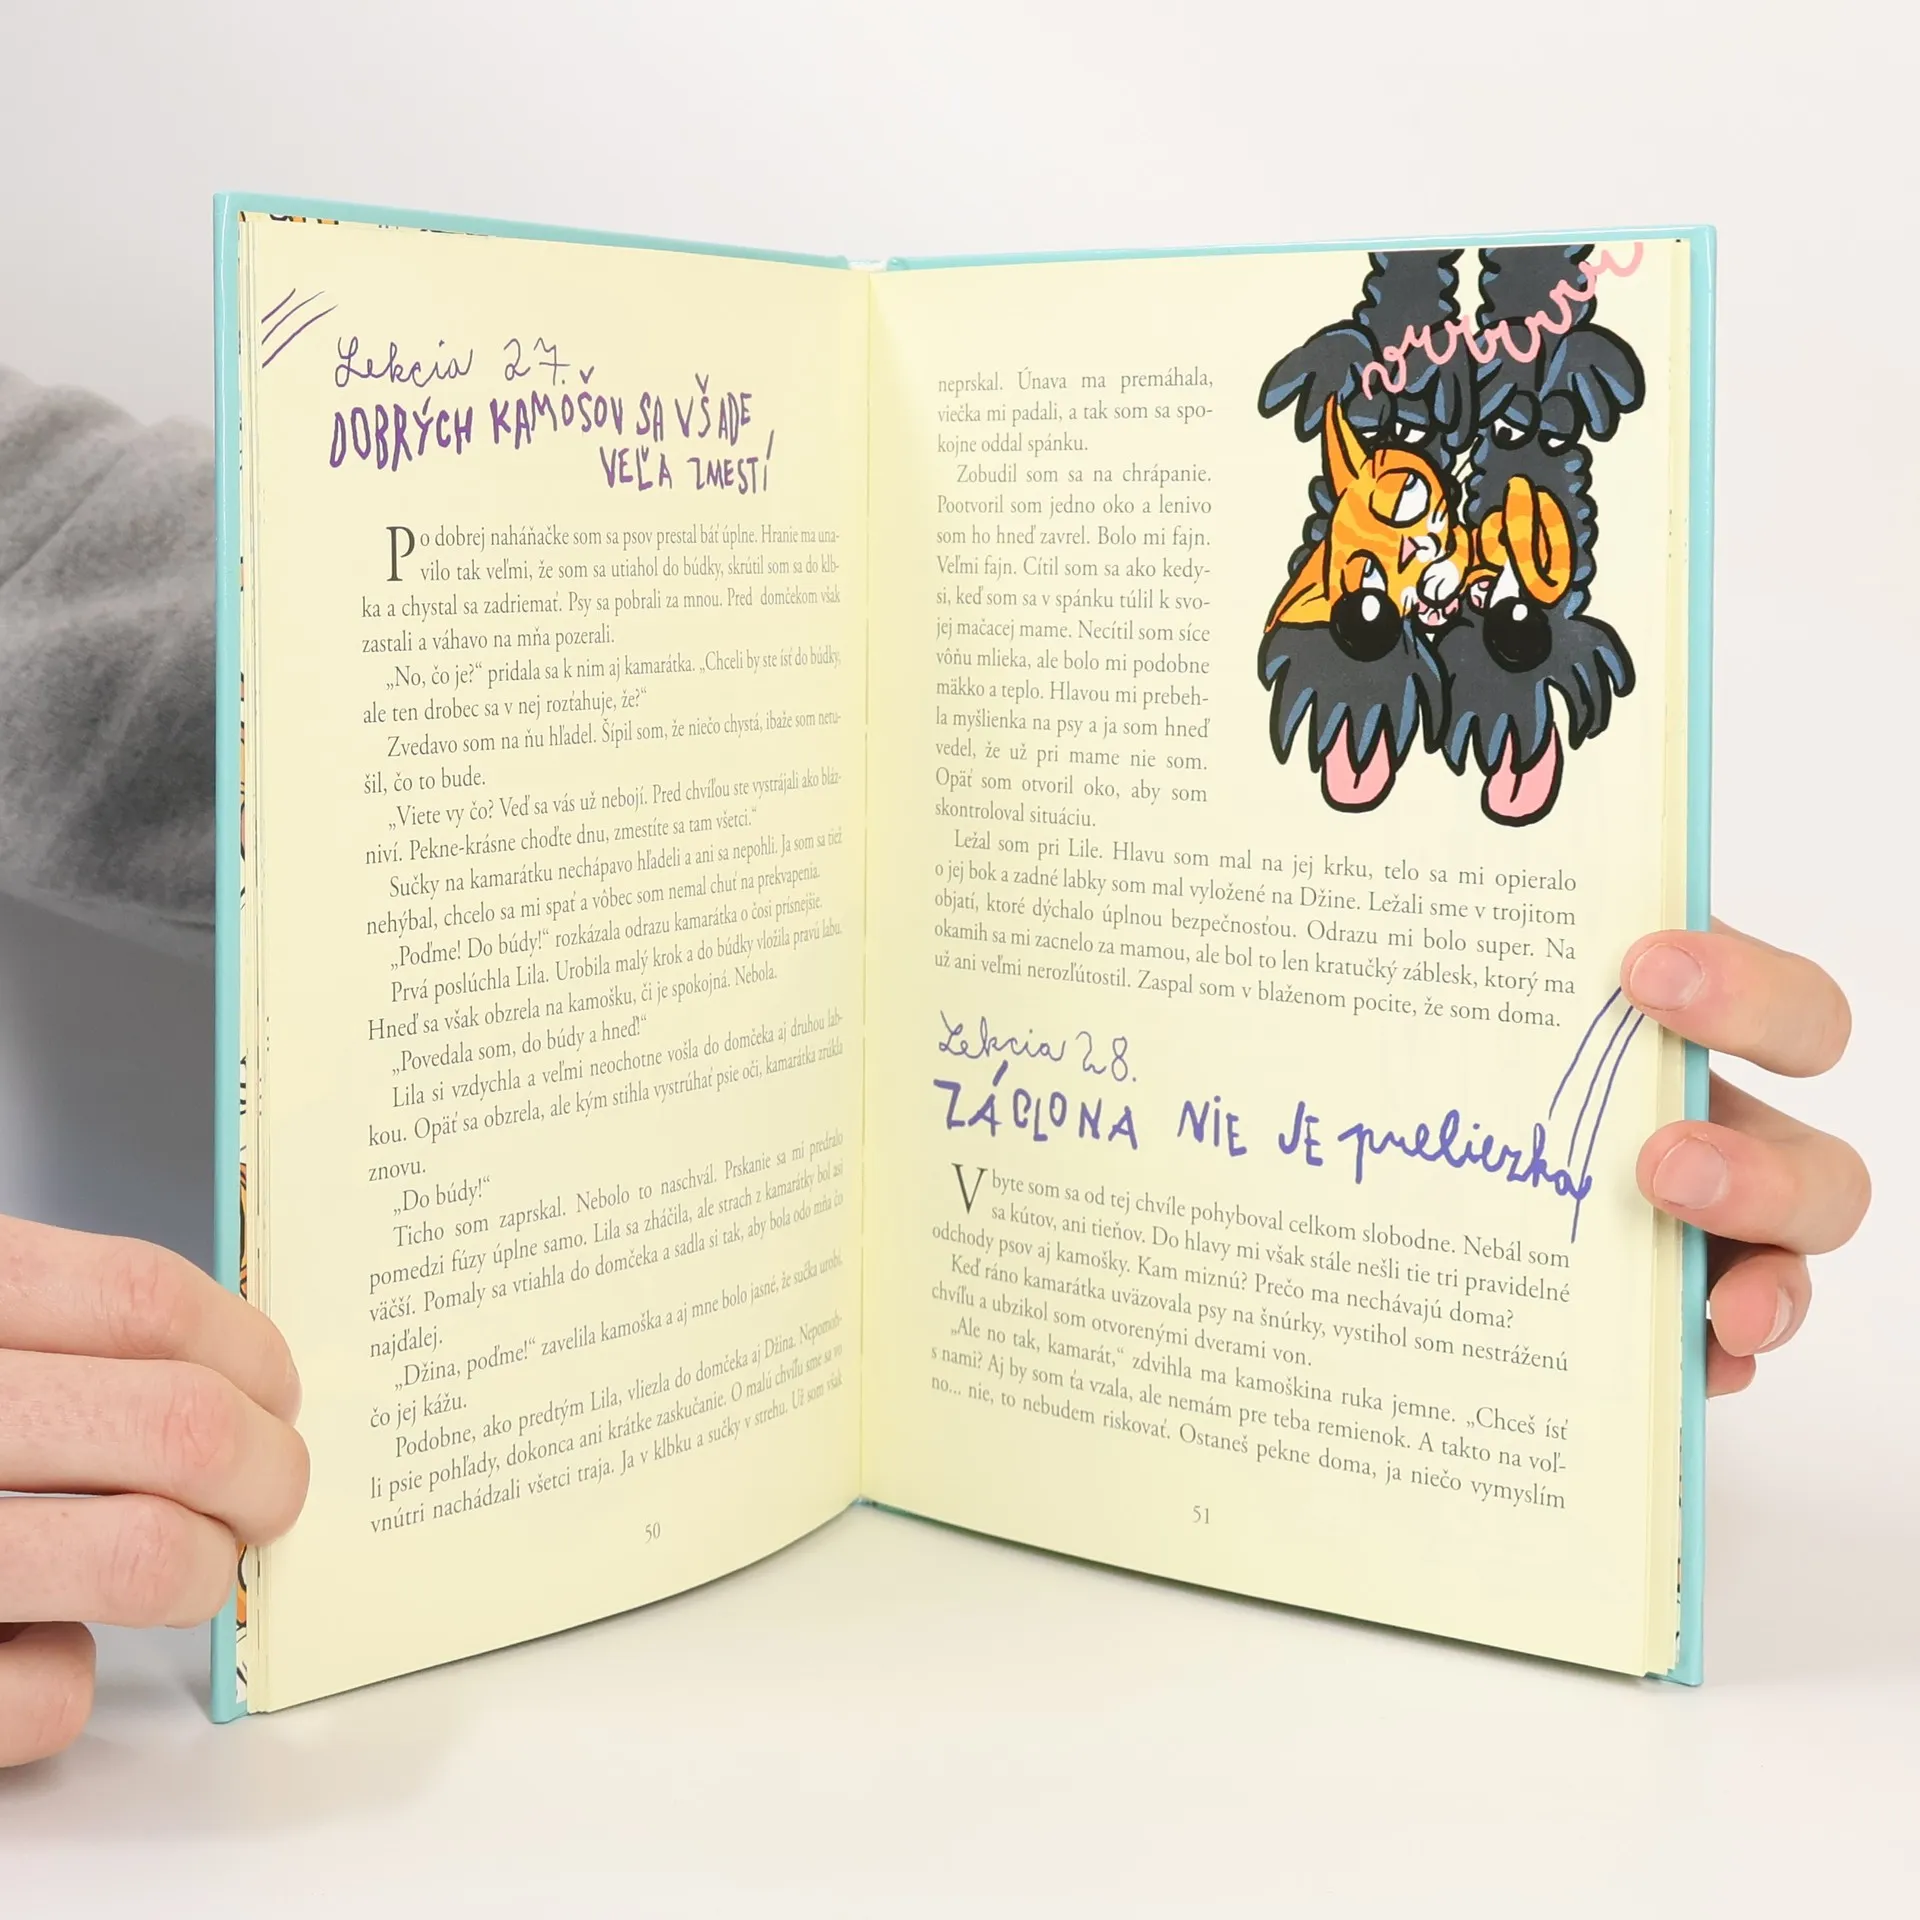 Lekcia 27.
DOBRÝCH KAMOŠOV SA VŠADE
VEĽA ZMESTÍ
Po dobrej naháňačke som sa psov prestal báť úplne. Hranie ma una-
vilo tak veľmi, že som sa utiahol do búdky, skrútil som sa do klb-
ka a chystal sa zadriemať. Psy sa pobrali za mnou. Pred domčekom však
zastali a váhavo na mňa pozerali.
„No, čo je?“ pridala sa k nim aj kamarátka. „Chceli by ste ísť do búdky,
ale ten drobec sa v nej rozťahuje, že?“
Zvedavo som na ňu hľadel. Šípil som, že niečo chystá, ibaže som netu-
šil, čo to bude.
„Viete vy čo? Veď sa vás už nebojí. Pred chvíľou ste vystrájali ako bláz-
niví. Pekne-krásne choďte dnu, zmestíte sa tam všetci.“
Sučky na kamarátku nechápavo hľadeli a ani sa nepohli. Ja som sa tiež
nehýbal, chcelo sa mi spať a vôbec som nemal chuť na prekvapenia.
„Poďme! Do búdy!“ rozkázala odrazu kamarátka o čosi prísnejšie.
Prvá poslúchla Lila. Urobila malý krok a do búdky vložila pravú labu.
Hneď sa však obzrela na kamošku, či je spokojná. Nebola.
„Povedala som, do búdy a hneď!“
Lila si vzdychla a veľmi neochotne vošla do domčeka aj druhou lab-
kou. Opäť sa obzrela, ale kým stihla vystrúhať psie oči, kamarátka zrúkla
znovu.
„Do búdy!“
Ticho som zaprskal. Nebolo to naschvál. Prskanie sa mi predralo
pomedzi fúzy úplne samo. Lila sa zháčila, ale strach z kamarátky bol asi
väčší. Pomaly sa vtiahla do domčeka a sadla si tak, aby bola odo mňa čo
najďalej.
„Džina, poďme!“ zavelila kamoška a aj mne bolo jasné, že sučka urobí,
čo jej kážu.
Podobne, ako predtým Lila, vliezla do domčeka aj Džina. Nepomoh-
li psie pohľady, dokonca ani krátke zaskučanie. O malú chvíľu sme sa vo
vnútri nachádzali všetci traja. Ja v klbku a sučky v strehu. Už som však
50
vrrrrrr
neprskal. Únava ma premáhala,
viečka mi padali, a tak som sa spo-
kojne oddal spánku.
Zobudil som sa na chrápanie.
Pootvoril som jedno oko a lenivo
som ho hneď zavrel. Bolo mi fajn.
Veľmi fajn. Cítil som sa ako kedy-
si, keď som sa v spánku túlil k svo-
jej mačacej mame. Necítil som síce
vôňu mlieka, ale bolo mi podobne
mäkko a teplo. Hlavou mi prebeh-
la myšlienka na psy a ja som hneď
vedel, že už pri mame nie som.
Opäť som otvoril oko, aby som
skontroloval situáciu.
Ležal som pri Lile. Hlavu som mal na jej krku, telo sa mi opieralo
o jej bok a zadné labky som mal vyložené na Džine. Ležali sme v trojitom
objatí, ktoré dýchalo úplnou bezpečnosťou. Odrazu mi bolo super. Na
okamih sa mi zacnelo za mamou, ale bol to len kratučký záblesk, ktorý ma
už ani veľmi nerozľútostil. Zaspal som v blaženom pocite, že som doma.
Lekcia 28.
ZÁCLONA NIE JE preliezka
V byte som sa od tej chvíle pohyboval celkom slobodne. Nebál som
sa kútov, ani tieňov. Do hlavy mi však stále nešli tie tri pravidelné
odchody psov aj kamošky. Kam miznú? Prečo ma nechávajú doma?
Keď ráno kamarátka uväzovala psy na šnúrky, vystihol som nestráženú
chvíľu a ubzikol som otvorenými dverami von.
„Ale no tak, kamarát,“ zdvihla ma kamoškina ruka jemne. „Chceš ísť
s nami? Aj by som ťa vzala, ale nemám pre teba remienok. A takto na voľ-
no... nie, to nebudem riskovať. Ostaneš pekne doma, ja niečo vymyslím
51